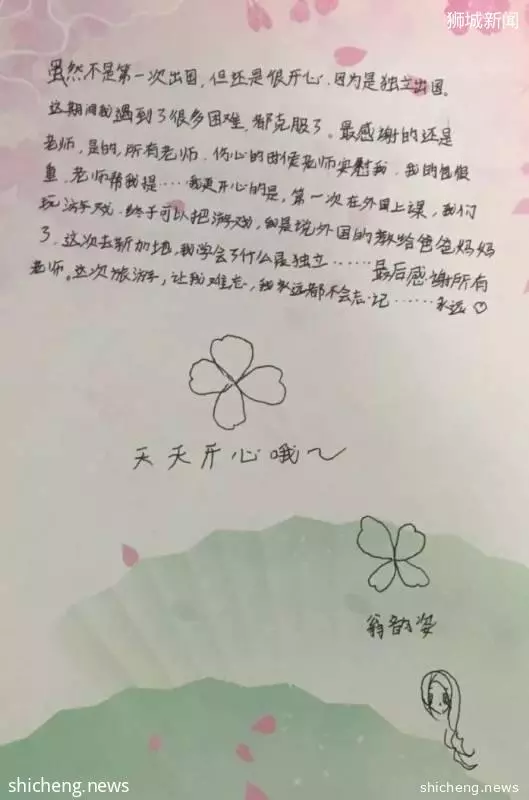 狮城新闻
虽然不是第一次出国，但还是很开心，因为是独立出国。
这期间我遇到了很多困难，都克服了。最感谢的还是
老师，是的，所有老师，伤心的时候老师安慰我，我的包很
重，老师帮我提……我更开心的是，第一次在外国上课，我们
玩游戏，终于可以把游戏，就是说外国的教给爸爸妈妈
了，这次去新加坡，我学会了什么是独立……最后感谢所有
老师。这次旅游，让我难忘，我永远都不会忘记……永远♡
天天开心哦～
翁韵姿
shicheng.news
shicheng.news